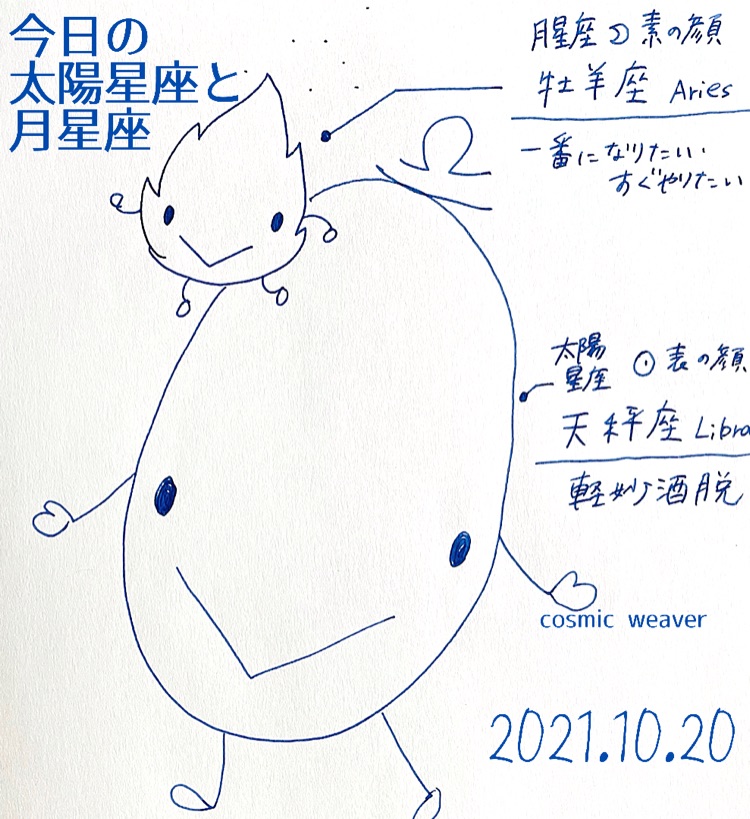 今日の
太陽星座と
月星座
月星座☽素の顔
牡羊座 Aries
一番になりたい
すぐやりたい
♎
太陽
星座 ☉ 表の顔
天秤座 Libra
軽妙洒脱
cosmic weaver
2021.10.20